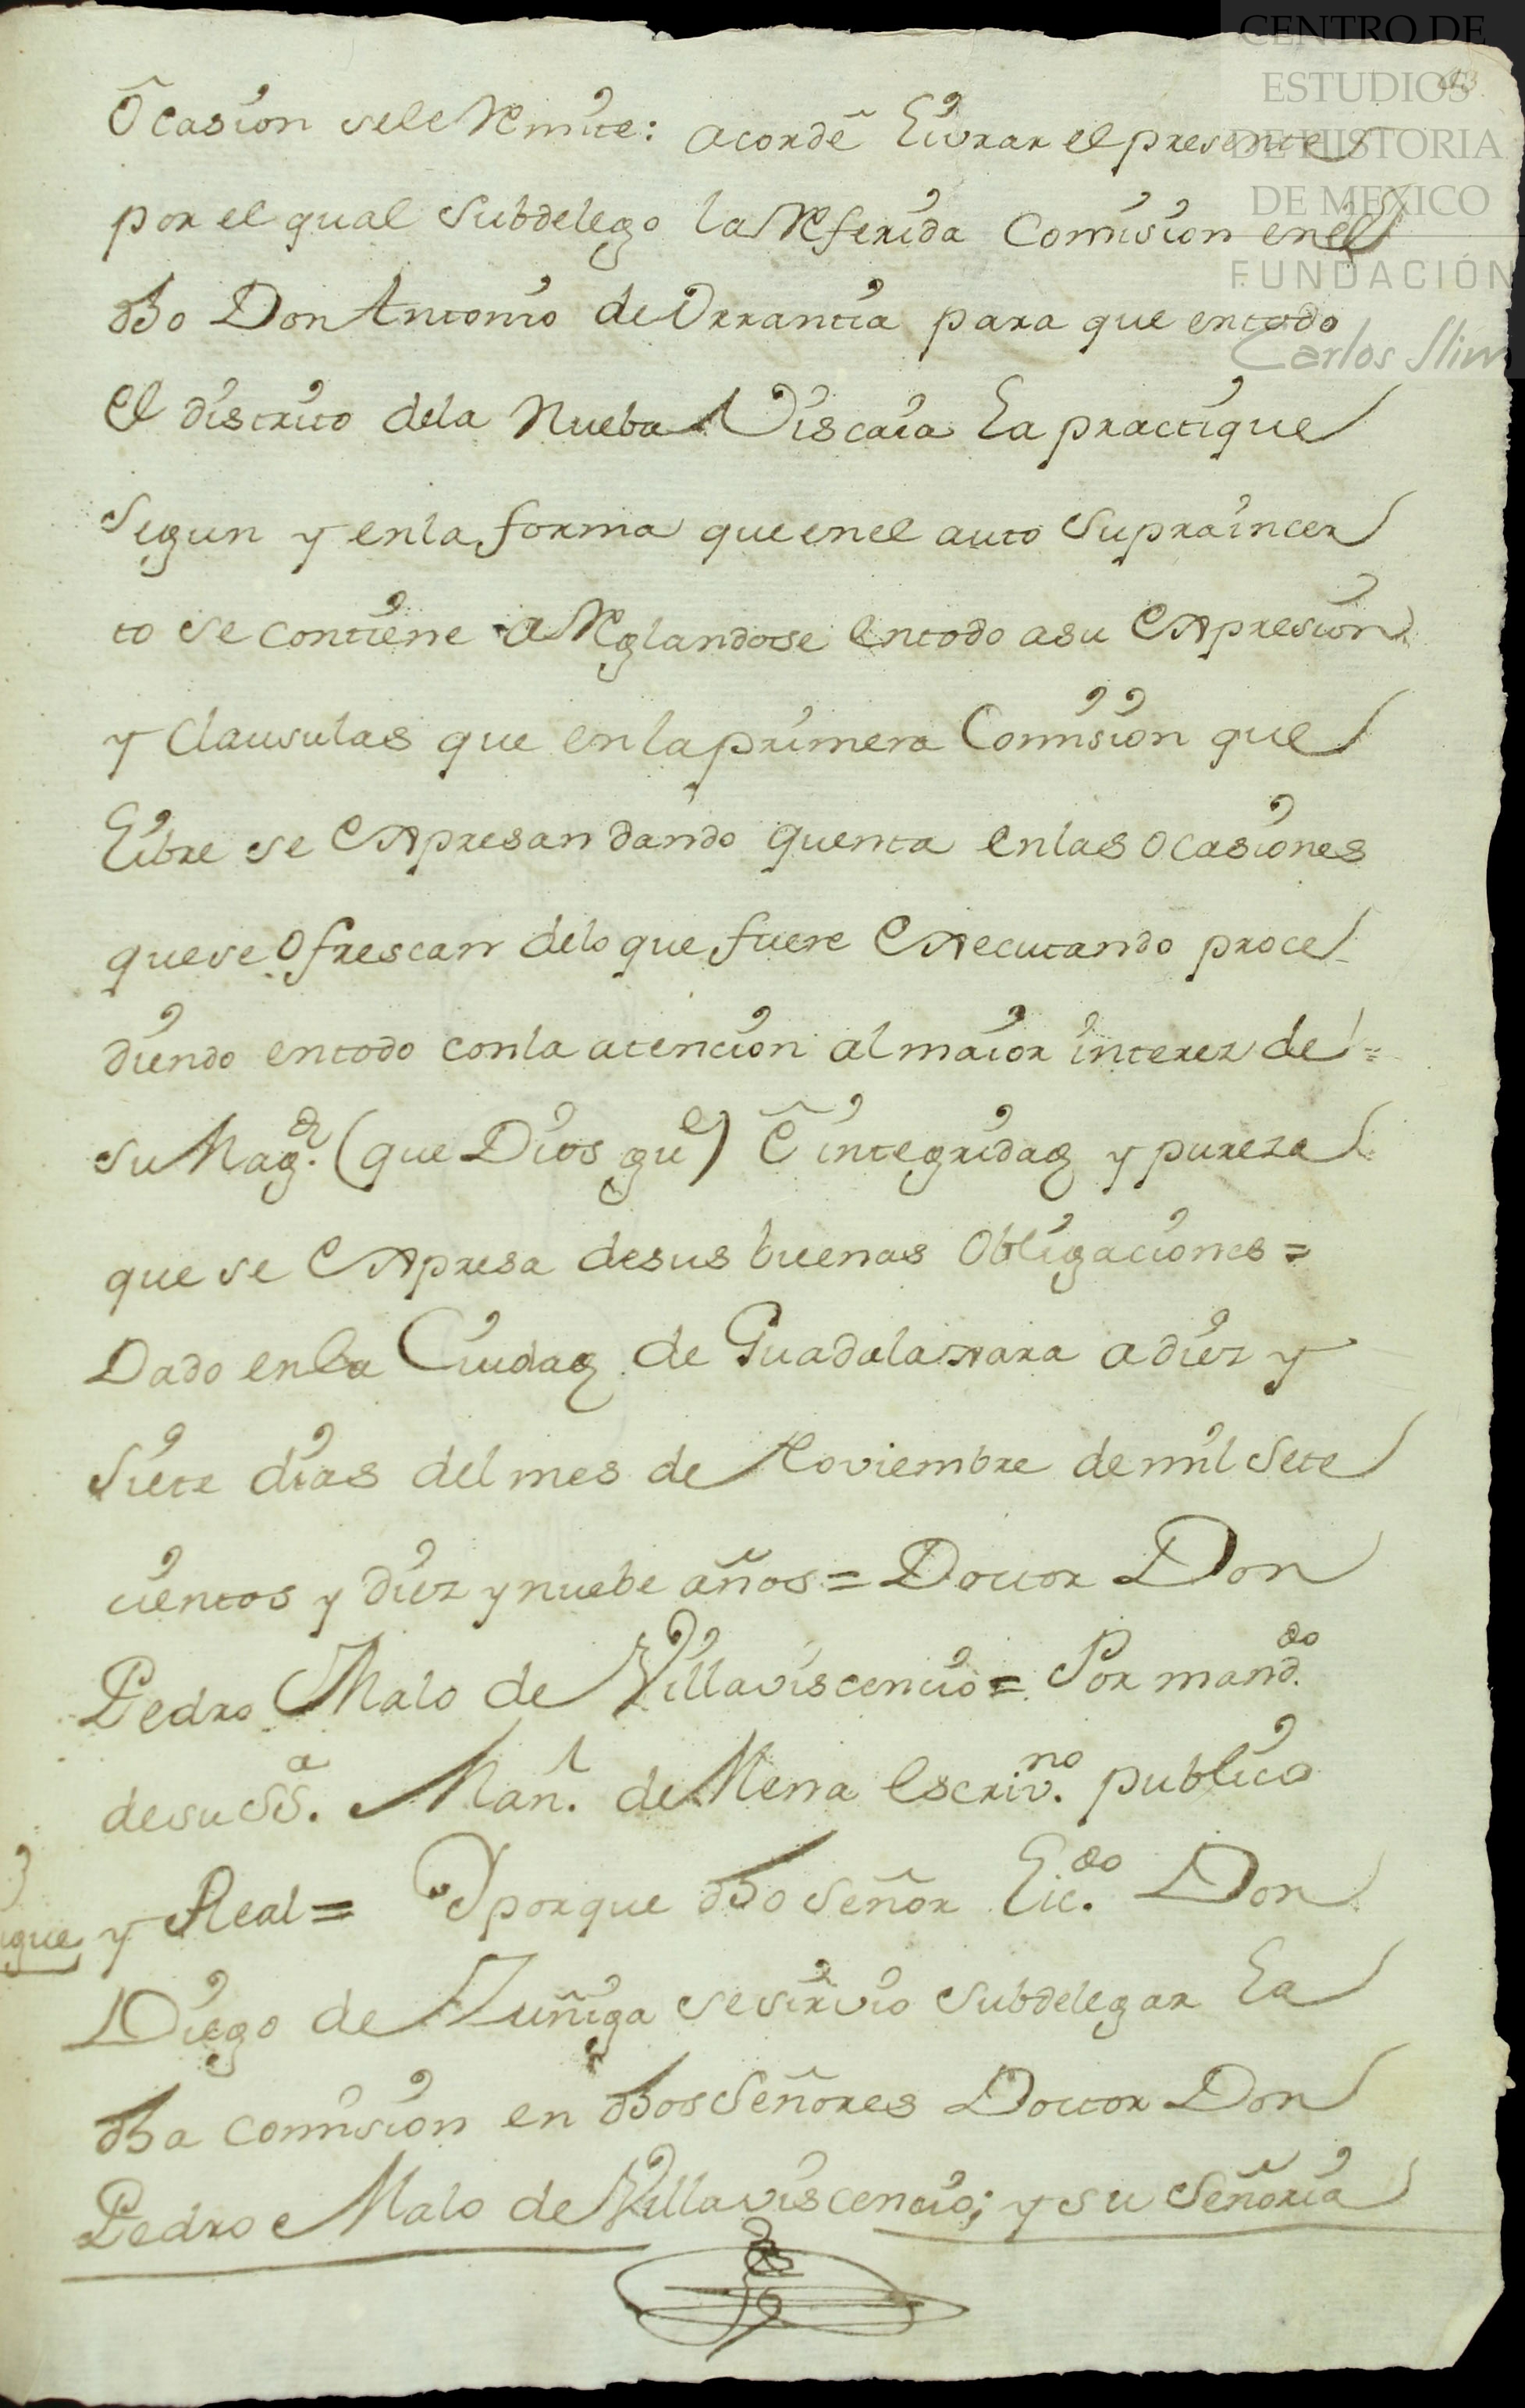 CENTRO DE
ESTUDIOS
DE HISTORIA
DE MEXICO
FUNDACIÓN
Carlos Slim
Ocasion se le Remite: acordé Livrar el presente
por el qual subdelego la Referida Comision en el
dho Don Antonio de Orrantia para que en todo
el distrito dela Nueba Viscaia la practique
segun y en la forma que en el auto supraincer
to se contiene aReglandose en todo a su expresion
y clausulas que en la primera Comision que
Libre se expresan dando quenta en las ocasiones
que se ofrescan delo que fuere executando proce
diendo en todo con la atencion al maior interez de
su Magd. (que Dios gue) é integridad y pureza
que se expresa de sus buenas obligaciones =
Dado en la Ciudad de Guadalaxara a diez y
siete dias del mes de Noviembre de mil sete
cientos y diez y nuebe años = Doctor Don
Pedro Malo de Villaviscencio = Por mando.
de su Ssa. Manl. de Mena escrivno. publico
y Real = Y porque dho señor Licdo. Don
Diego de Zuñiga se sirvio subdelegar la
dha comision en dhos señores Doctor Don
Pedro Malo de Villaviscencio; y su señoria